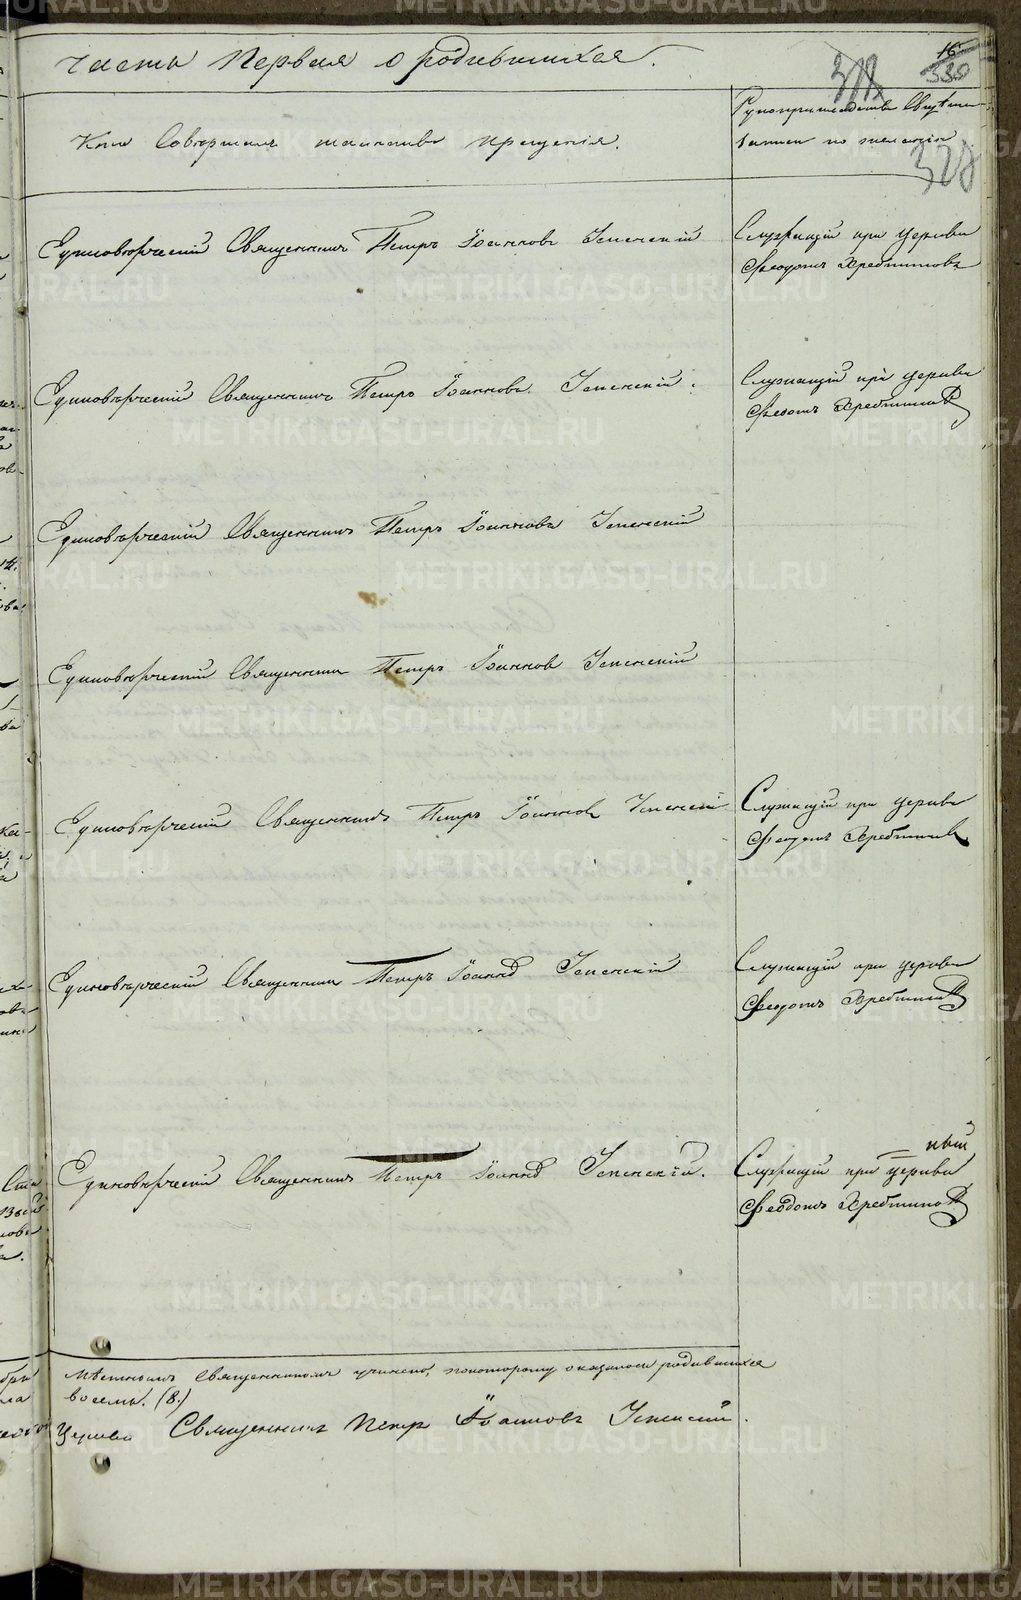 Часть Первая о родившихся.
16
330
328
Кто Совершалъ таинство крещенія.
Рукоприкладство Свидѣте
записи по желанію
Единовѣрческій Священникъ Петръ Іоанновъ Успенскій
Служащій при церкви
Ѳеодотъ Хребтиковъ
Единовѣрческій Священникъ Петръ Іоанновъ Успенскій.
Служащій при церкви
Ѳеодотъ
Единовѣрческій Священникъ Петръ Іоанновъ Успенскій
Единовѣрческій Священникъ Петръ Іоанновъ Успенскій
Единовѣрческій Священникъ Петръ Іоанновъ Успенскій
Служащій при церкви
Ѳеодотъ
Единовѣрческій Священникъ Петръ Іоаннъ Успенскій
Служащій при церкви
Ѳеодотъ
ный
Единовѣрческій Священникъ Петръ Іоаннъ Успенскій.
Служащій при церкви
Ѳеодотъ
мѣстнымъ Священникомъ учинено, по которому оказалось родившихся
восемь. (8.)
Церкви Священникъ Петръ Іоанновъ Успенскій.
METRIKI.GASO-URAL.RU